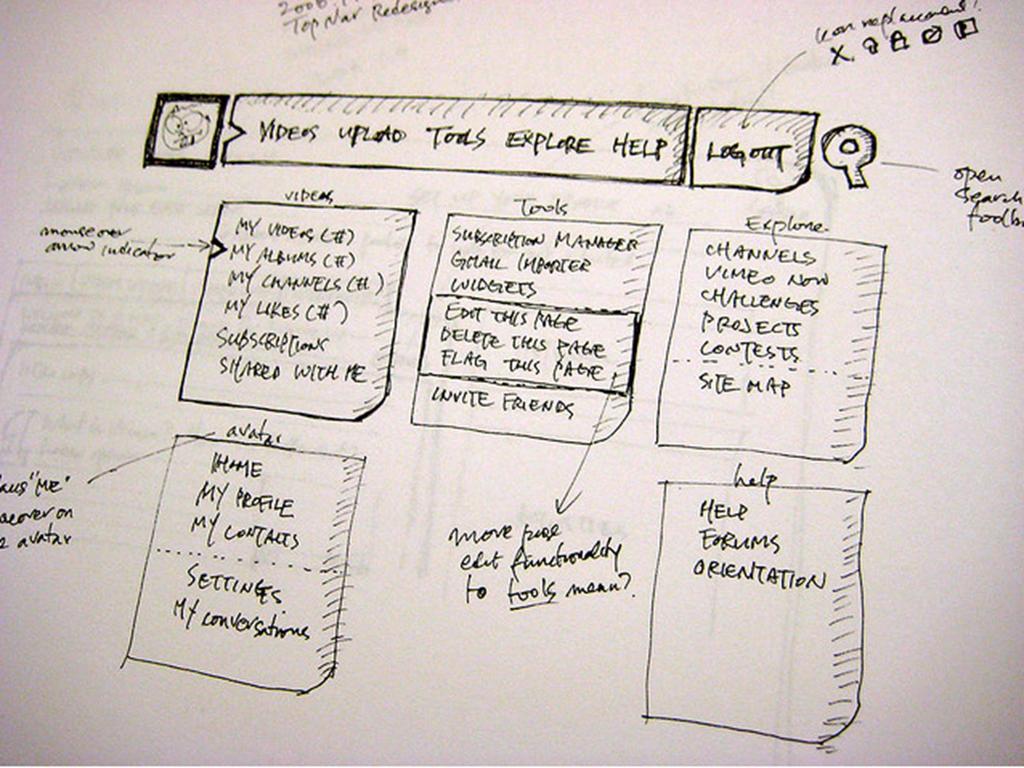 Top Nav Redesign
icon replacement?
VIDEOS UPLOAD TOOLS EXPLORE HELP
LOGOUT
open
search
mouseover
arrow indicator
videos
MY VIDEOS (#)
MY ALBUMS (#)
MY CHANNELS (#)
MY LIKES (#)
SUBSCRIPTIONS
SHARED WITH ME
Tools
SUBSCRIPTION MANAGER
GMAIL IMPORTER
WIDGETS
EDIT THIS PAGE
DELETE THIS PAGE
FLAG THIS PAGE
INVITE FRIENDS
Explore
CHANNELS
VIMEO NOW
CHALLENGES
PROJECTS
CONTESTS
SITE MAP
avatar
HOME
MY PROFILE
MY CONTACTS
SETTINGS
MY conversations
"ME"
on
avatar
move page
edit functionality
to tools menu?
help
HELP
FORUMS
ORIENTATION